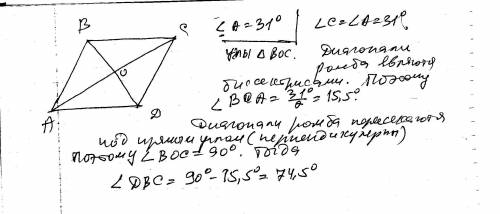 B C
∠A = 31° ∠C = ∠A = 31°,
углы △BOC. Диагонали
ромба являются
биссектрисами. Поэтому
∠BCA = 31°/2 = 15,5°
O
A D
Диагонали ромба пересекаются
под прямым углом (перпендикулярны)
Поэтому ∠BOC = 90°. Тогда
∠DBC = 90° - 15,5° = 74,5°